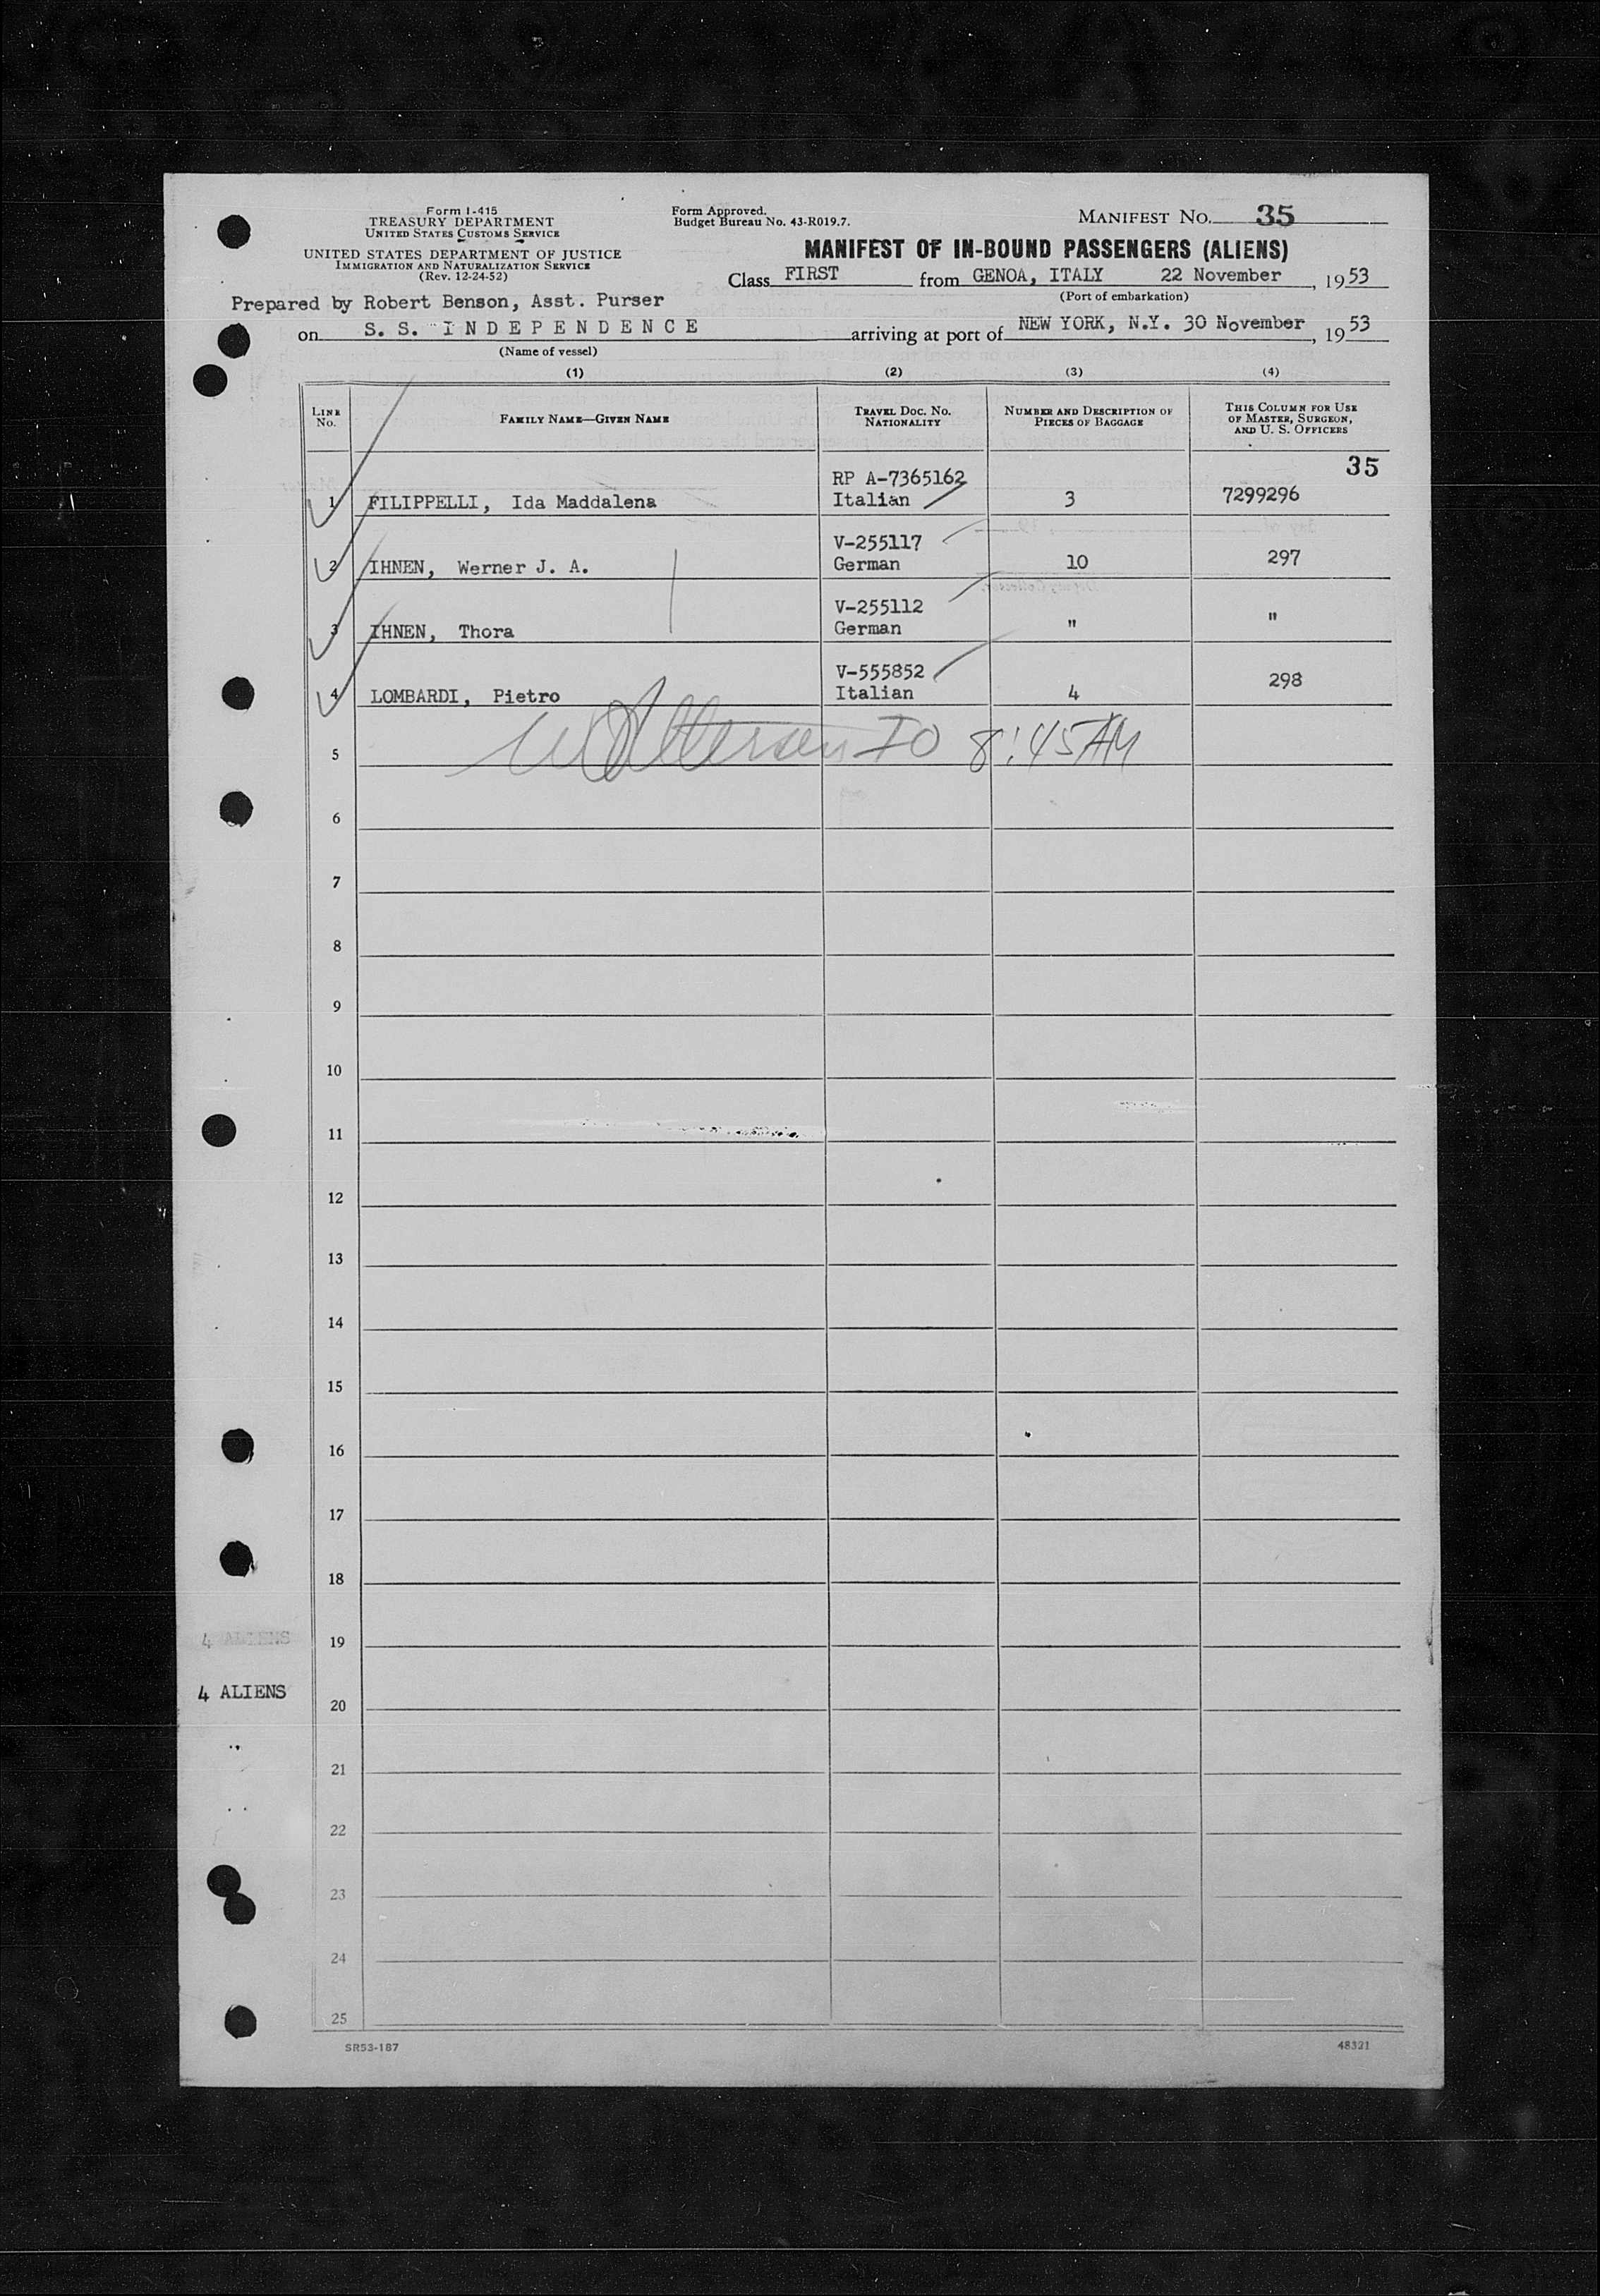 Form I-415
TREASURY DEPARTMENT
UNITED STATES CUSTOMS SERVICE
UNITED STATES DEPARTMENT OF JUSTICE
IMMIGRATION AND NATURALIZATION SERVICE
(Rev. 12-24-52)
Form Approved.
Budget Bureau No. 43-R019.7.
MANIFEST NO. 35
MANIFEST OF IN-BOUND PASSENGERS (ALIENS)
Class FIRST from GENOA, ITALY 22 November, 1953
(Port of embarkation)
Prepared by Robert Benson, Asst. Purser
on S. S. I N D E P E N D E N C E arriving at port of NEW YORK, N.Y. 30 November, 1953
(Name of vessel)
(1) (2) (3) (4)
LINE No.
FAMILY NAME—GIVEN NAME
TRAVEL DOC. NO. NATIONALITY
NUMBER AND DESCRIPTION OF PIECES OF BAGGAGE
THIS COLUMN FOR USE OF MASTER, SURGEON, AND U. S. OFFICERS
35
RP A-7365162
1 FILIPPELLI, Ida Maddalena Italian 3 7299296
V-255117
2 IHNEN, Werner J. A. German 10 297
V-255112
3 IHNEN, Thora German " "
V-555852
4 LOMBARDI, Pietro Italian 4 298
5 IO 8:45 AM
6
7
8
9
10
11
12
13
14
15
16
17
18
4 ALIENS 19
4 ALIENS 20
21
22
23
24
25
SR53-187 48321